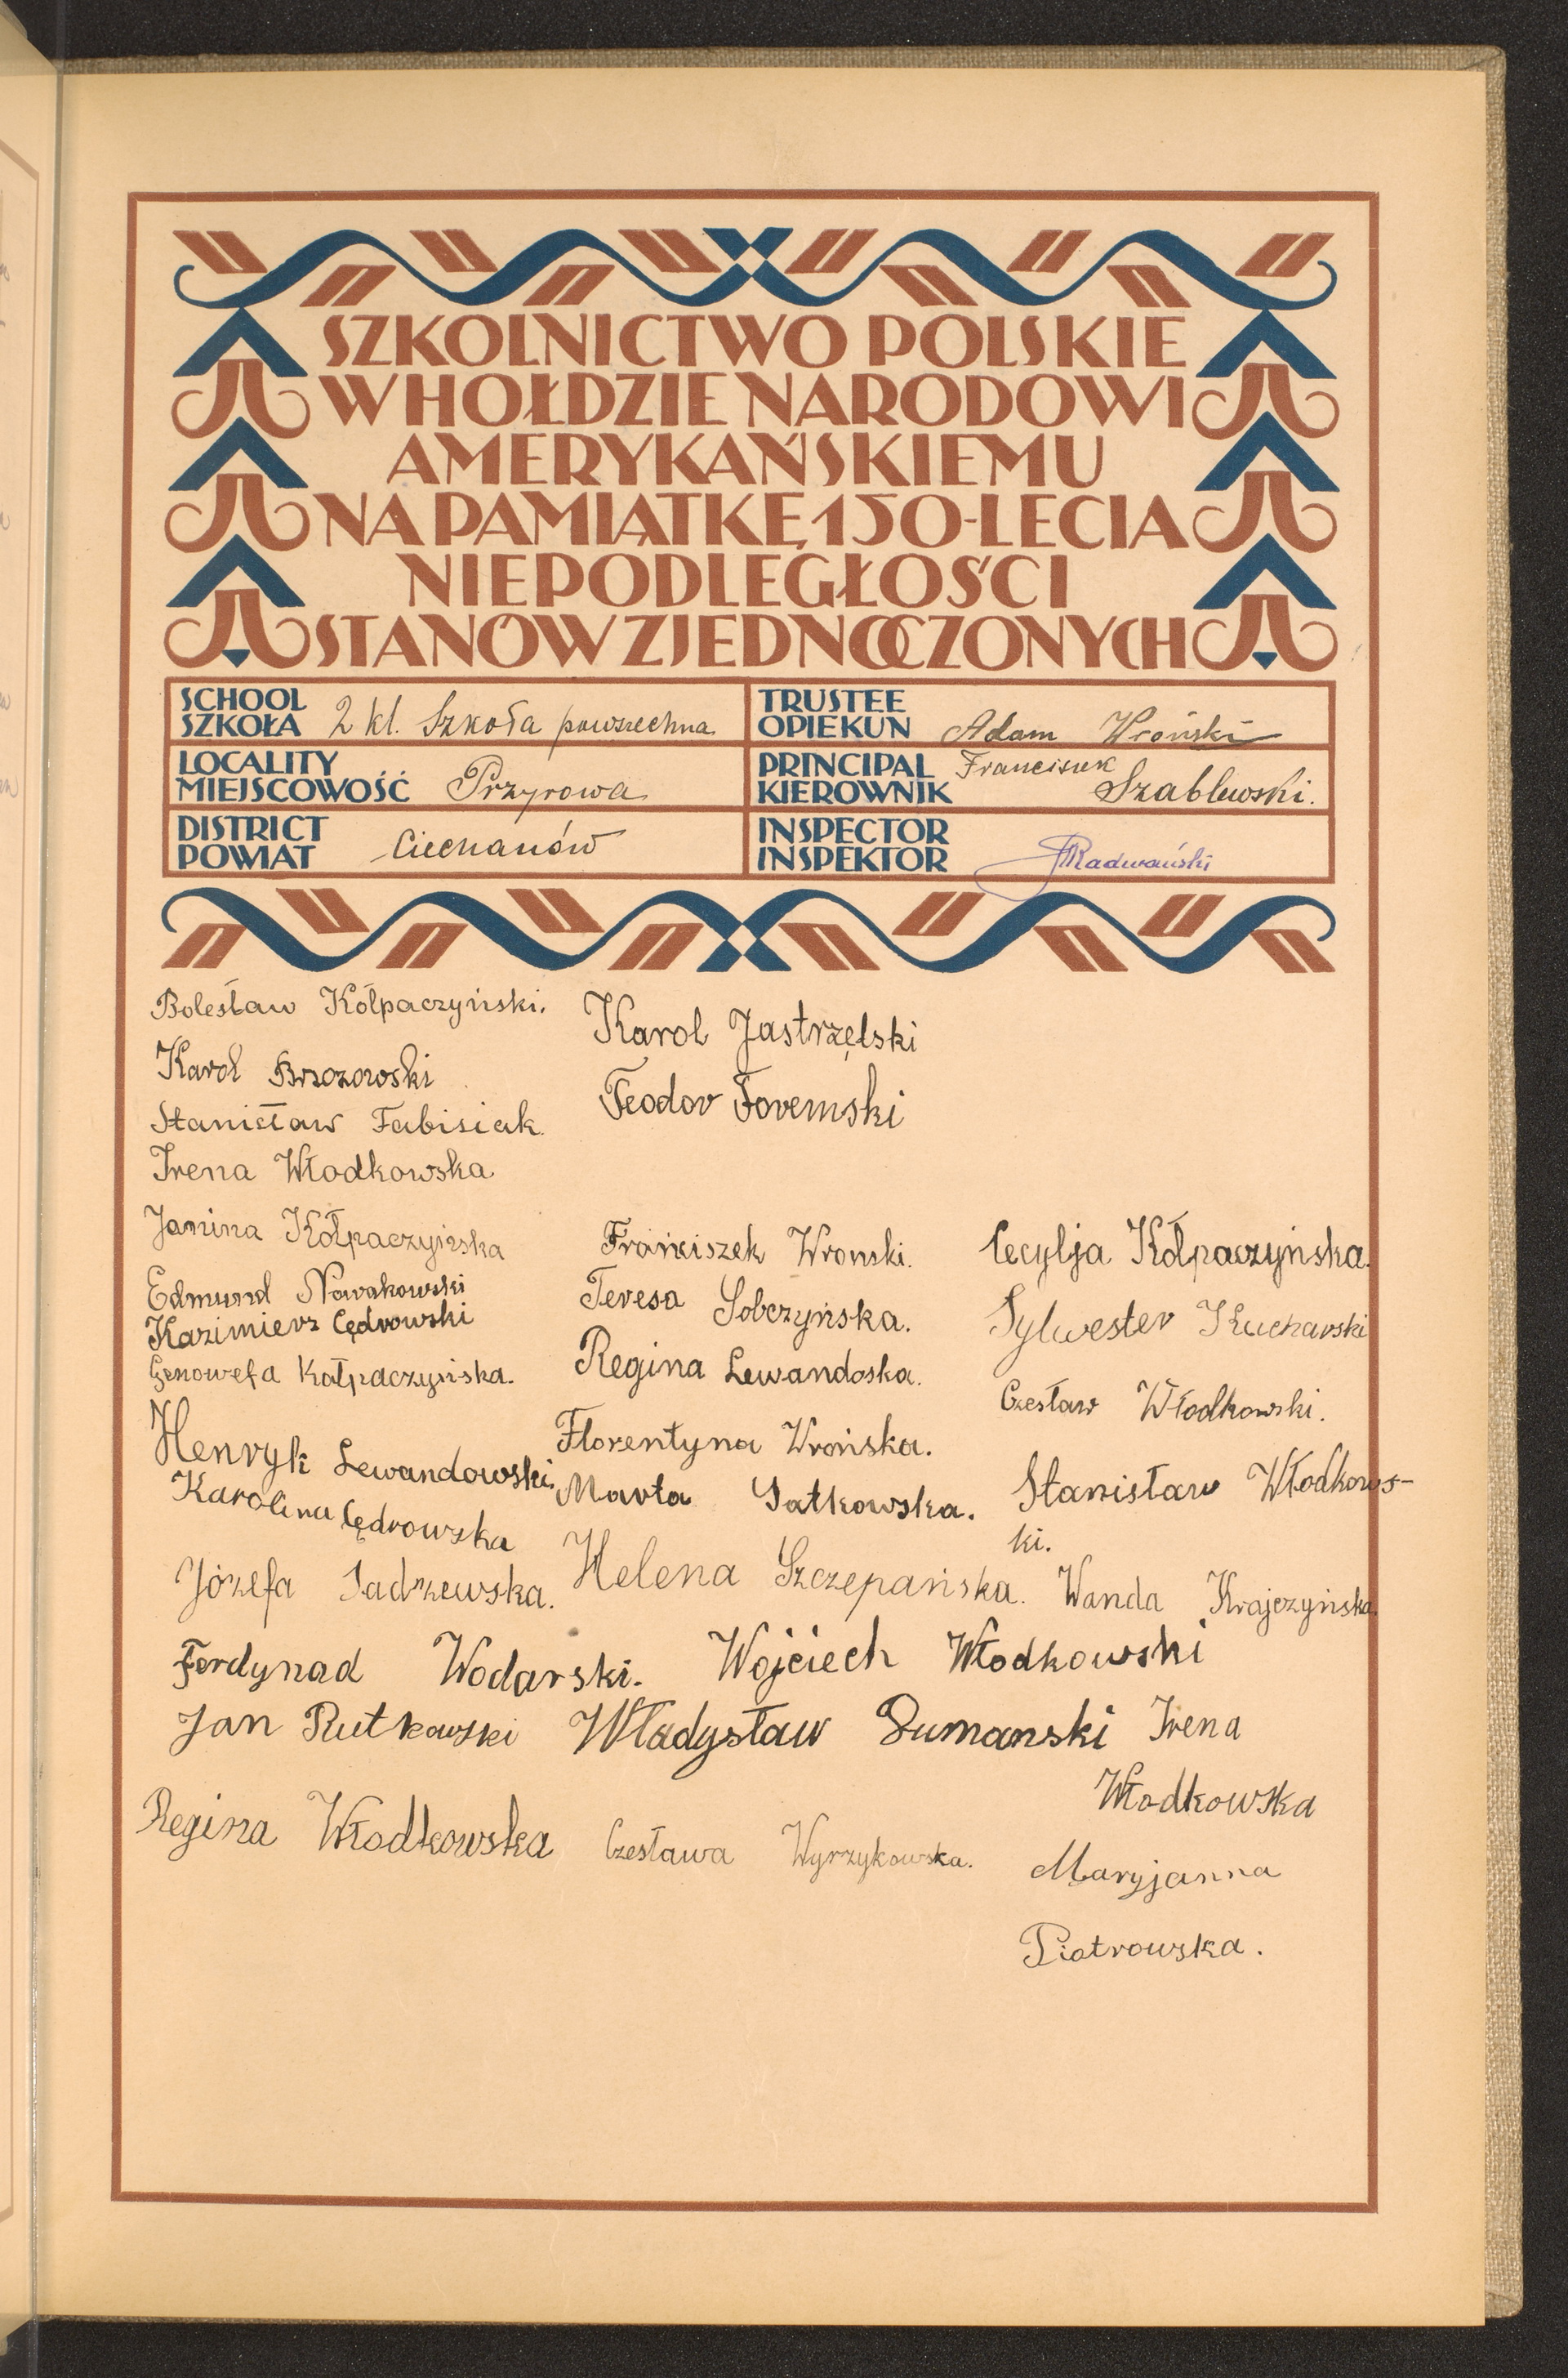 SZKOLNICTWO POLSKIE
W HOŁDZIE NARODOWI
AMERYKAŃSKIEMU
NA PAMIĄTKĘ 150-LECIA
NIEPODLEGŁOŚCI
STANÓW ZJEDNOCZONYCH
SCHOOL
SZKOŁA 2 kl. Szkoła powszechna
TRUSTEE
OPIEKUN Adam Wroński
LOCALITY
MIEJSCOWOŚĆ Przyrowa
PRINCIPAL Franciszek
KIEROWNIK Szablewski.
DISTRICT
POWIAT Ciechanów
INSPECTOR
INSPEKTOR Radwański
Bolesław Kółpaczyński.
Karol Brzozowski
Stanisław Fabisiak
Irena Włodkowska
Karol Jastrzęlski
Teodor Foremski
Janina Kółpaczyńska
Edmund Nowakowski
Kazimierz Cędrowski
Genowefa Kałpaczyńska.
Henryk Lewandowski.
Karolina Cędrowska
Józefa Sadzewska.
Franciszek Wronski.
Teresa Sobczyńska.
Regina Lewandoska.
Florentyna Wrońska.
Marta Satkowska.
Helena Szczepańska.
Cecylja Kółpaczyńska.
Sylwester Kucharski
Czesław Włodkowski.
Stanisław Włodkows-
ki.
Wanda Krajczyńska.
Ferdynad Wodarski. Wojciech Włodkowski
Jan Rutkowski Władysław Dumanski Irena
Włodkowska
Regina Włodkowska Czesława Wyrzykowska.
Maryjanna
Piotrowska.